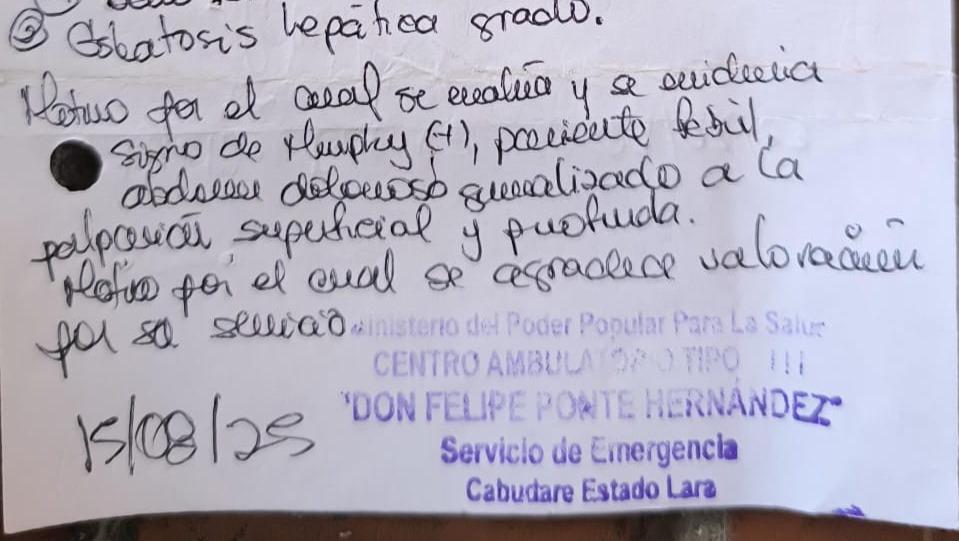 ② Esteatosis hepática grado.
Motivo por el cual se evalúa y se evidencia
signo de Murphy (+), paciente febril,
abdomen doloroso generalizado a la
palpación superficial y profunda.
Motivo por el cual se agradece valoración
por su servicio
Ministerio del Poder Popular Para La Salud
CENTRO AMBULATORIO TIPO III
"DON FELIPE PONTE HERNÁNDEZ"
15/08/25
Servicio de Emergencia
Cabudare Estado Lara